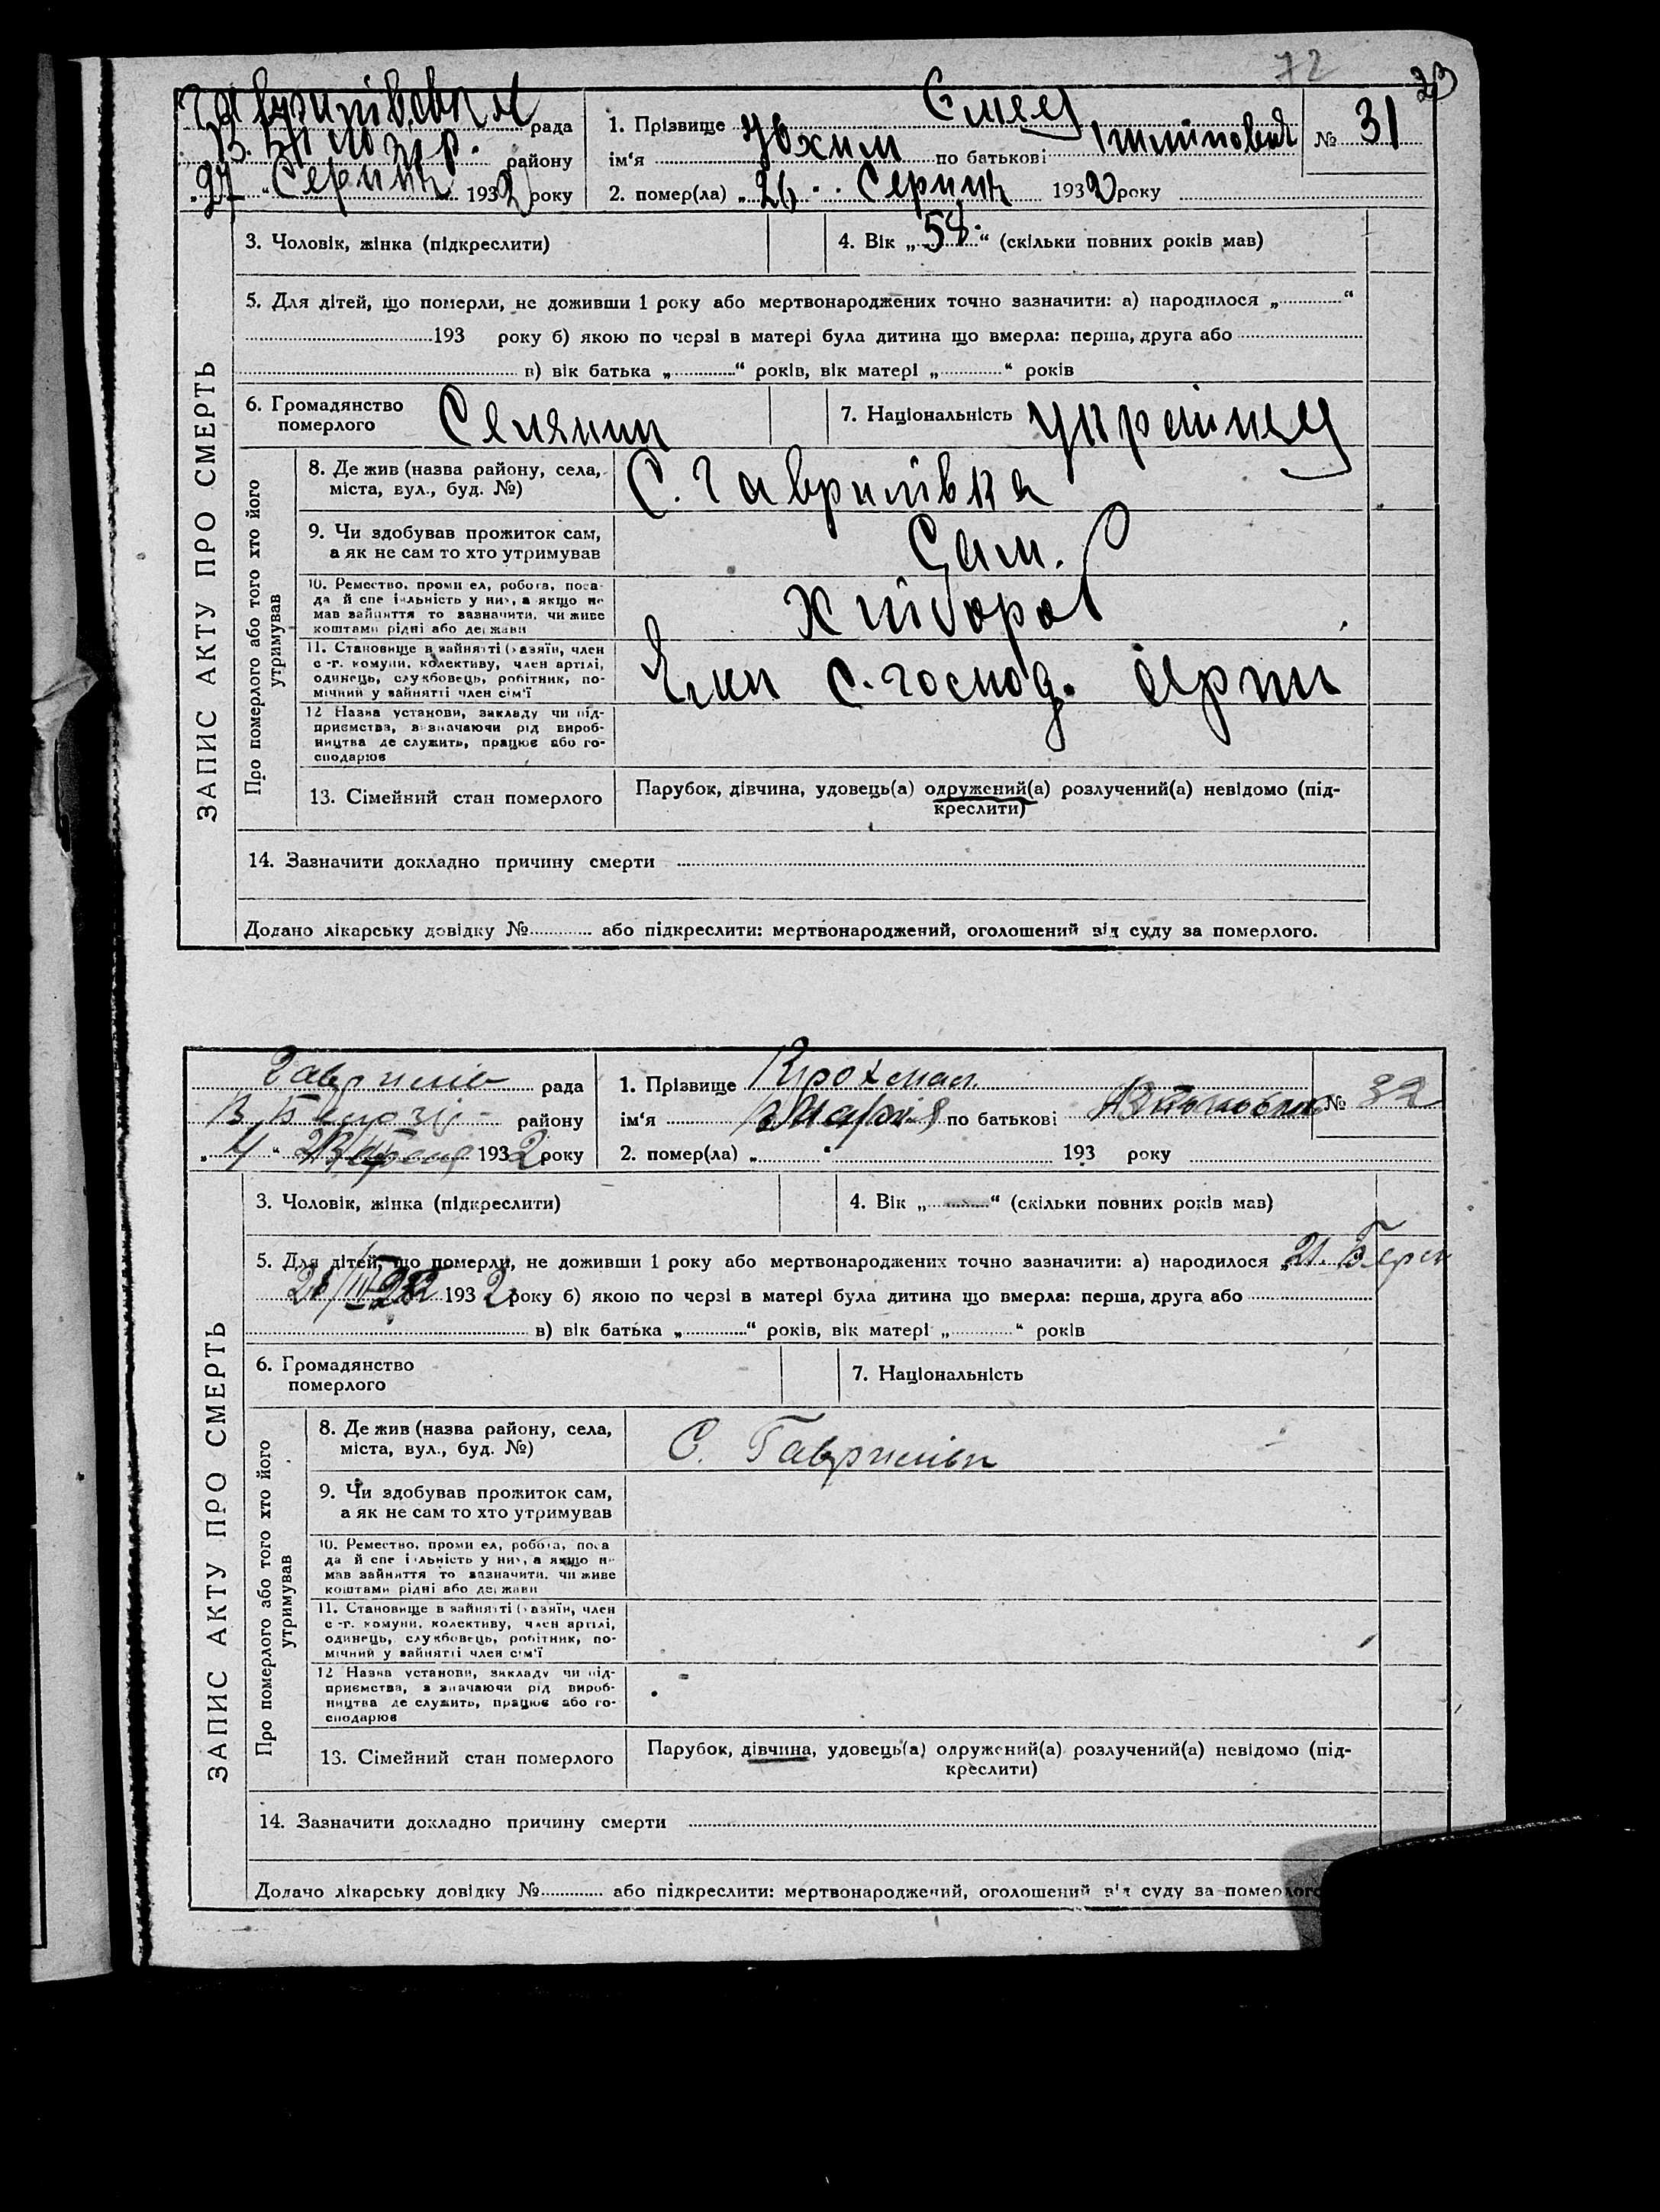 72
73
Гаврилівська рада
В. Білозір. району
„27“ Серпня 1932 року
1. Прізвище Смец
ім'я Юхим по батькові
№ 31
2. помер(ла) „26“ Серпня 1932 року
3. Чоловік, жінка (підкреслити)
4. Вік „58“ (скільки повних років мав)
5. Для дітей, що померли, не доживши 1 року або мертвонароджених точно зазначити: а) народилося „ “
193 року б) якою по черзі в матері була дитина що вмерла: перша, друга або
в) вік батька „ “ років, вік матері „ “ років
6. Громадянство
померлого
Селянин
7. Національність Українец
ЗАПИС АКТУ ПРО СМЕРТЬ
Про померлого або того хто його
утримував
8. Де жив (назва району, села,
міста, вул., буд. №)
С. Гаврилівка
9. Чи здобував прожиток сам,
а як не сам то хто утримував
Сам.
10. Ремество, проми ел, робота, поса-
да й спе і льність у них, а якщо не
мав зайняття то зазначити, чи живе
коштами рідні або держави
Хлібороб
11. Становище в зайнятті (хазяїн, член
с-г. комуни, колективу, член артілі,
одинець, службовець, робітник, по-
мічний у зайнятті член сім'ї
Член с. господ. Артіл
12 Назва установи, закладу чи під-
приємства, зазначаючи рід вироб-
ництва де служить, працює або го-
сподарює
13. Сімейний стан померлого
Парубок, дівчина, удовець(а) одружений(а) розлучений(а) невідомо (під-
креслити)
14. Зазначити докладно причину смерти
Додано лікарську довідку № або підкреслити: мертвонароджений, оголошений від суду за померлого.
Гаврилів рада
В. Білозір району
„4“ 1932 року
1. Прізвище Крохмал
ім'я Марія по батькові
№ 32
2. помер(ла) „ “ 193 року
3. Чоловік, жінка (підкреслити)
4. Вік „ “ (скільки повних років мав)
5. Для дітей, що померли, не доживши 1 року або мертвонароджених точно зазначити: а) народилося „21. Берез
1932 року б) якою по черзі в матері була дитина що вмерла: перша, друга або
в) вік батька „ “ років, вік матері „ “ років
6. Громадянство
померлого
7. Національність
ЗАПИС АКТУ ПРО СМЕРТЬ
Про померлого або того хто його
утримував
8. Де жив (назва району, села,
міста, вул., буд. №)
С. Гаврилівк
9. Чи здобував прожиток сам,
а як не сам то хто утримував
10. Ремество, проми ел, робота, поса
да й спе і льність у них, а якщо не
мав зайняття то зазначити, чи живе
коштами рідні або держави
11. Становище в зайнятті (хазяїн, член
с-г. комуни, колективу, член артілі,
одинець, службовець, робітник, по-
мічний у зайнятті член сім'ї
12 Назва установи, закладу чи під-
приємства, зазначаючи рід вироб-
ництва де служить, працює або го-
сподарює
13. Сімейний стан померлого
Парубок, дівчина, удовець(а) одружений(а) розлучений(а) невідомо (під-
креслити)
14. Зазначити докладно причину смерти
Додано лікарську довідку № або підкреслити: мертвонароджений, оголошений від суду за померлого